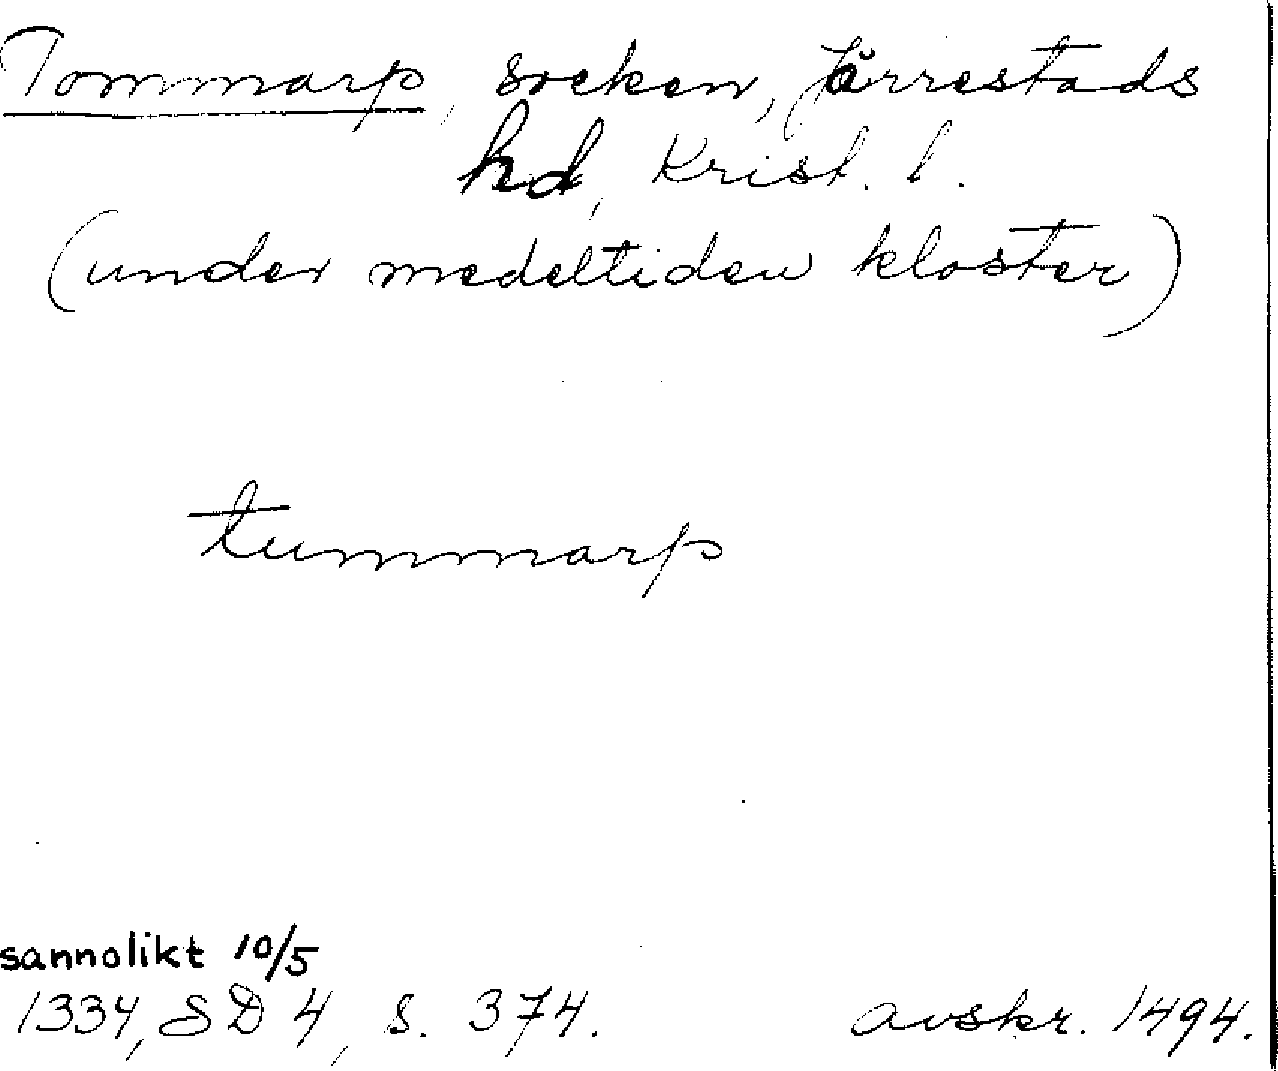 Tommarp, socken, Järrestads
hd, Krist. l.
(under medeltiden kloster)
tummarp
sannolikt 10/5
1334, SD 4, s. 374. avskr. 1494.